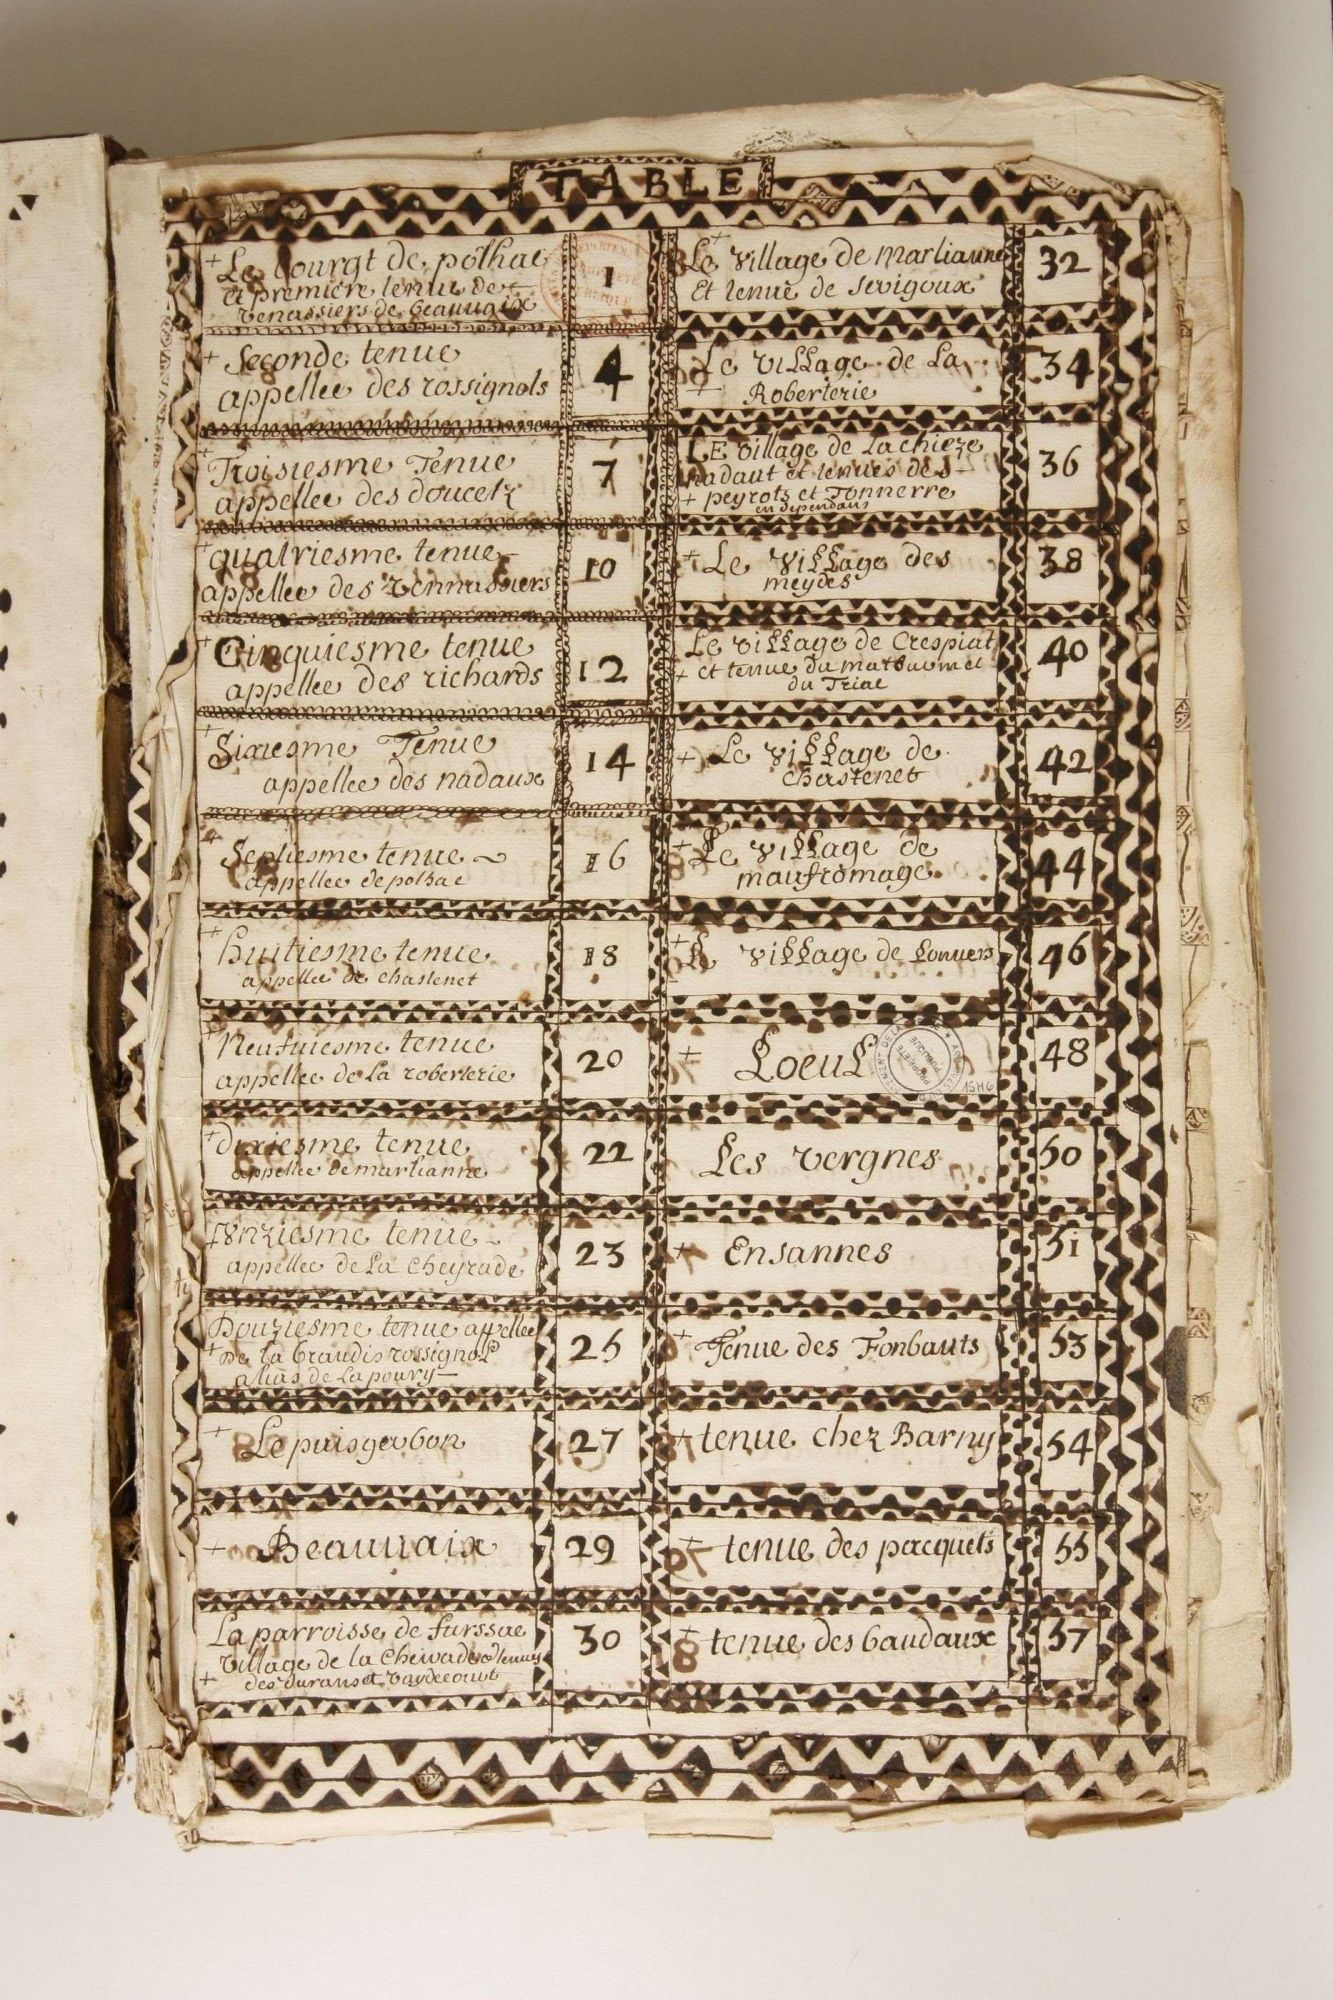 TABLE
+ Le bourgt de polhac
et premiere tenue de
venassiers de beauuaix
1
+ Seconde tenue
appellee des rossignols
4
+ Troisiesme Tenue
appellee des doucetz
7
+ quatriesme tenue
appellee des vennassiers
10
+ Cinquiesme tenue
appellee des richards
12
+ Sixiesme Tenue
appellee des nadaux
14
+ Septiesme tenue
appellee de polhac
16
+ huitiesme tenue
appellee de chastenet
18
+ Neufuiesme tenue
appellee de La roberterie
20
+ dixiesme tenue
appellee de martianne
22
+ Vnziesme tenue
appellee de La Cheyrade
23
Douziesme tenue appellee
+ De la Graudis rossignol
alias de Lapoury
25
+ Le puisgerbon
27
+ Beauuaix
29
La parroisse de furssac
village de la Cheirade et tenues
+ des durans et
30
+ Le village de marlianne
Et tenue de servigoux
32
Le village de La
+ Roberterie
34
LE village de Lachieze
nadaut et tenues des
+ peyrots et Tonnerre
en dependans
36
+ Le village des
meydes
38
Le village de Crespiat
+ et tenue du
du Triac
40
+ Le village de
Chastenet
42
+ Le village de
maufromage
44
+ Le village de Lonuers
46
+ Loeul
48
Les vergnes
50
+ Ensannes
51
+ Tenue des Fonbauts
53
+ tenue chez Barny
54
+ tenue des pacquets
55
+ tenue des baudaux
57
PROPRIETE
PUBLIQUE
15H6